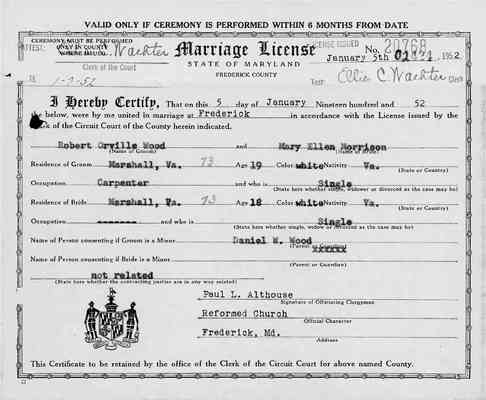 VALID ONLY IF CEREMONY IS PERFORMED WITHIN 6 MONTHS FROM DATE
CEREMONY MUST BE PERFORMED
ONLY IN COUNTY
WHERE ISSUED.
ATTEST: Ellis C. Wachter
Clerk of the Court
1-7-52
Marriage License
LICENSE ISSUED
No. 20768
January 5th 1952
STATE OF MARYLAND
FREDERICK COUNTY
Test: Ellis C. Wachter Clerk
I Hereby Certify, That on this 5 day of January Nineteen hundred and 52
the below, were by me united in marriage at Frederick in accordance with the License issued by the
Clerk of the Circuit Court of the County herein indicated.
Robert Orville Wood and Mary Ellen Morrison
(Name of Groom) (Name of Bride)
Residence of Groom Marshall, Va. 73 Age 19 Color white Nativity Va.
(State or Country)
Occupation Carpenter and who is Single
(State here whether single, widower or divorced as the case may be)
Residence of Bride Marshall, Va. 73 Age 18 Color white Nativity Va.
(State or Country)
Occupation ------- and who is Single
(State here whether single, widow or divorced as the case may be)
Name of Person consenting if Groom is a Minor Daniel W. Wood
(Parent or Guardian) xxxxxx
Name of Person consenting if Bride is a Minor
(Parent or Guardian)
not related
(State here whether the contracting parties are in any way related)
Paul L. Althouse
Signature of Officiating Clergyman
Reformed Church
Official Character
Frederick, Md.
Address
This Certificate to be retained by the office of the Clerk of the Circuit Court for above named County.